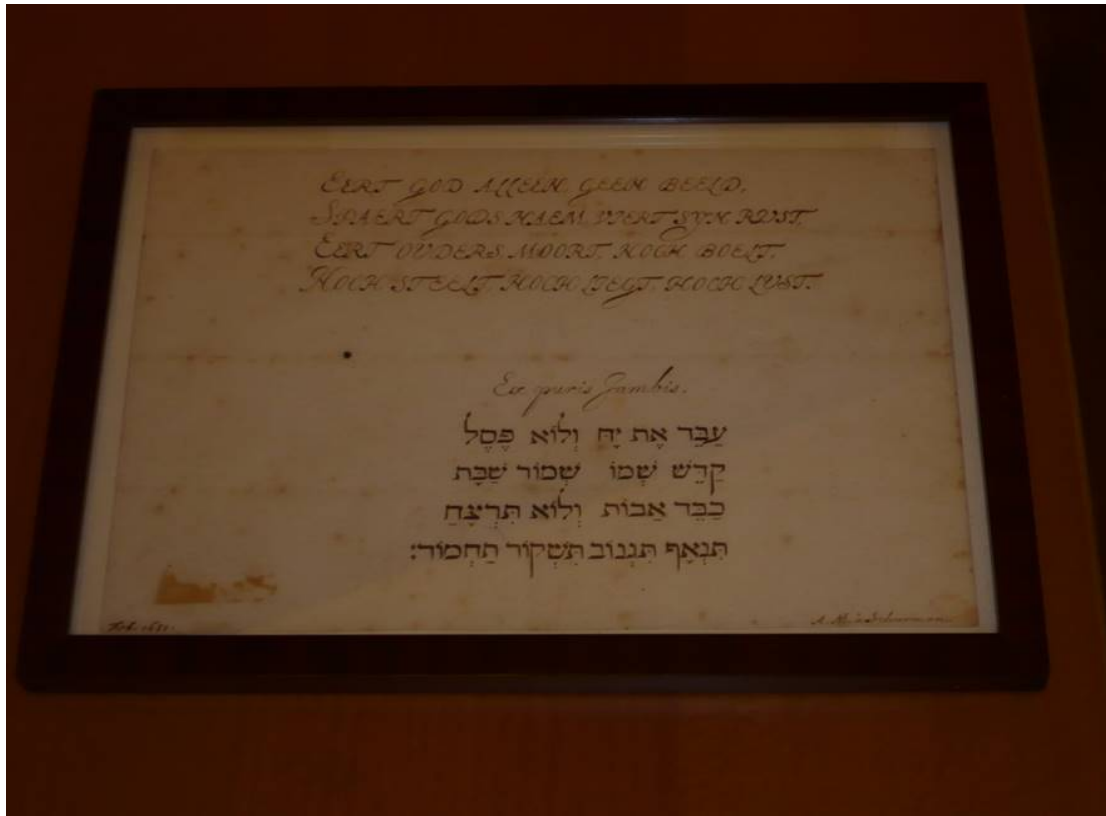 EERT GOD ALLEEN, GEEN BEELD,
SPAERT GODS NAEM, VIERT SYN RUST.
EERT OUDERS, MOORT, NOCH BOELT,
NOCH STEELT, NOCH LIEGT, NOCH LUST.
Ex puris Jambis.
עַבֵּד אֶת יָהּ וְלוֹא פֶּסֶל
קַדֵּשׁ שְׁמוֹ שְׁמוֹר שַׁבָּת
כַּבֵּד אַבוֹת וְלוֹא תִּרְצָח
תִּנְאָף תִּגְנוֹב תִּשְׁקוֹר תַּחְמוֹד׃
A. M. à Schurman.